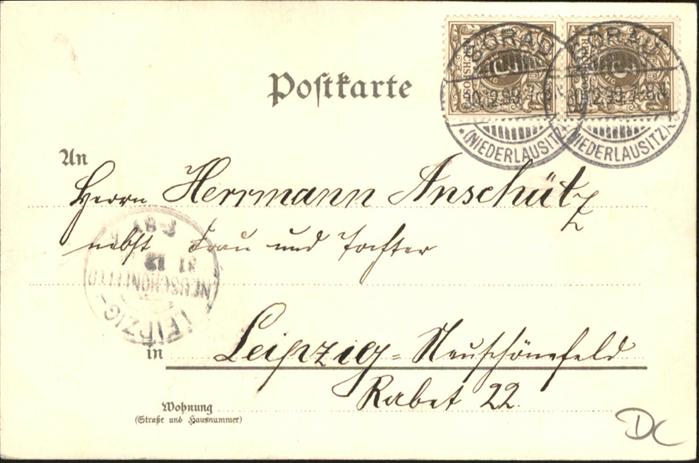 Postkarte
SORAU
30.12.99.7-8N.
*(NIEDERLAUSITZ)*
SORAU
30.12.99.7-8N.
*(NIEDERLAUSITZ)*
An
Herrn Herrmann Anschütz
nebst Frau und Tochter
LEIPZIG-
NEUSCHÖNEFELD
31 12
in Leipzig-Neuschönefeld
Rabet 22.
Wohnung
(Straße und Hausnummer)
DC